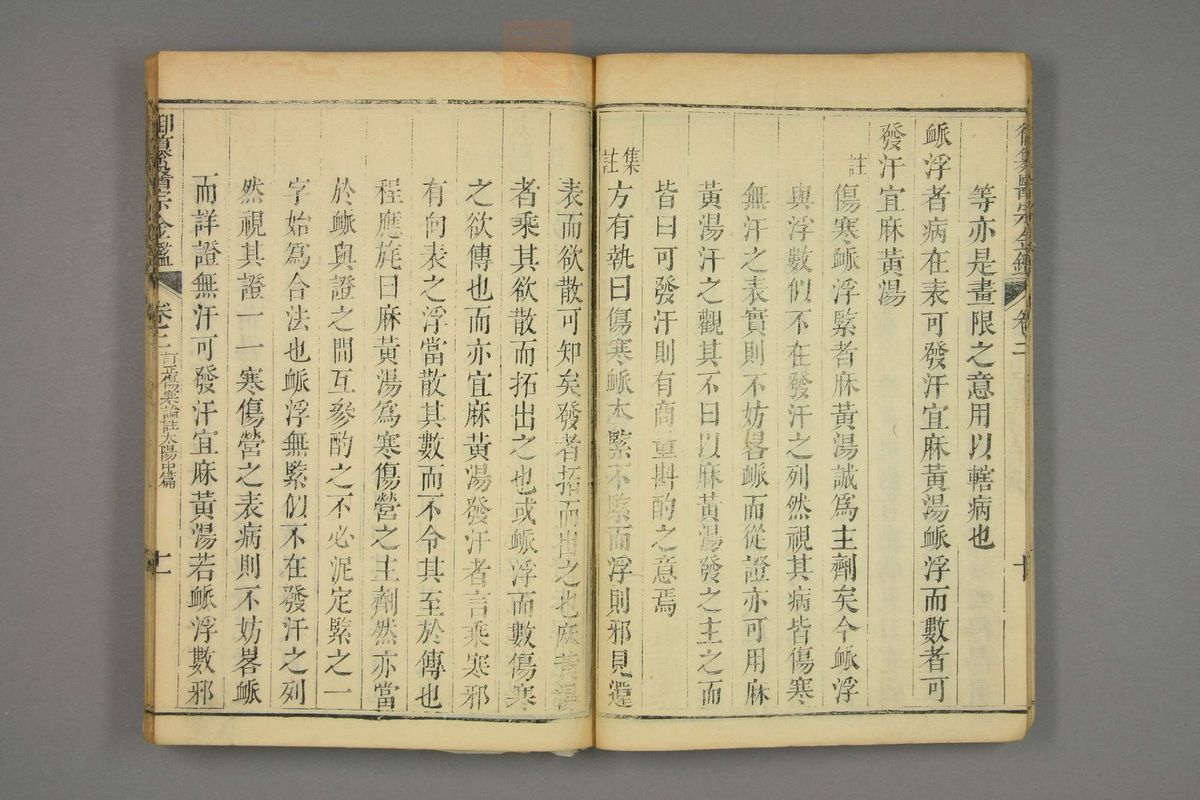 御纂醫宗金鑑 卷二 十
等亦是畫限之意用以轄病也
脈浮者病在表可發汗宜麻黃湯脈浮而數者可
發汗宜麻黃湯
註傷寒脈浮緊者麻黃湯誠爲主劑矣今脈浮
與浮數似不在發汗之列然視其病皆傷寒
無汗之表實則不妨畧脈而從證亦可用麻
黃湯汗之觀其不曰以麻黃湯發之主之而
皆曰可發汗則有商量斟酌之意焉
集註方有執曰傷寒脈本緊不緊而浮則邪見還
表而欲散可知矣發者拓而出之也麻黃湯
者乘其欲散而拓出之也或脈浮而數傷寒
之欲傳也而亦宜麻黃湯發汗者言乘寒邪
有向表之浮當散其數而不令其至於傳也
程應旄曰麻黃湯爲寒傷營之主劑然亦當
於脈與證之間互參酌之不必泥定緊之一
字始爲合法也脈浮無緊似不在發汗之列
然視其證一一寒傷營之表病則不妨畧脈
而詳證無汗可發汗宜麻黃湯若脈浮數邪
御纂醫宗金鑑 卷二 訂正傷寒論註太陽中篇 十一